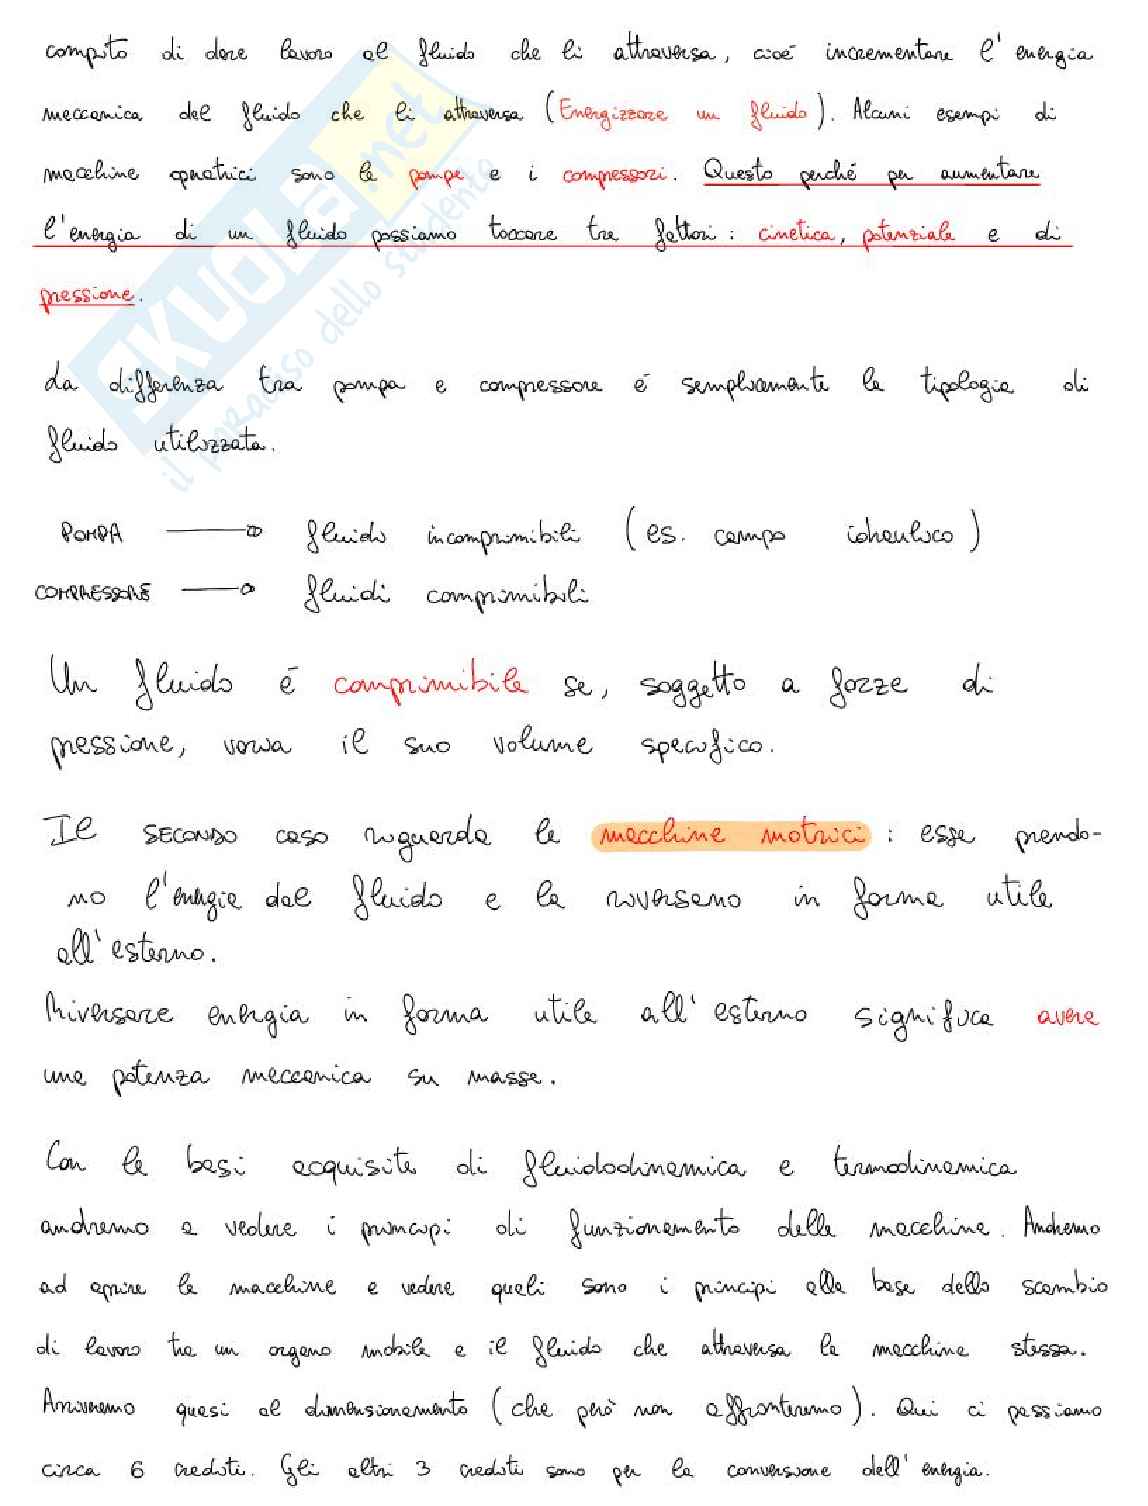 compito di dare lavoro al fluido che li attraversa, cioè incrementare l'energia
meccanica del fluido che li attraversa (Energizzare un fluido). Alcuni esempi di
macchine operatrici sono le pompe e i compressori. Questo perché per aumentare
l'energia di un fluido possiamo toccare tre fattori: cinetica, potenziale e di
pressione.
La differenza tra pompa e compressore è semplicemente la tipologia di
fluido utilizzata.
POMPA → fluido incomprimibili (es. campo idraulico)
COMPRESSORE → fluidi comprimibili
Un fluido è comprimibile se, soggetto a forze di
pressione, varia il suo volume specifico.
Il SECONDO caso riguarda le macchine motrici: esse prendo-
no l'energia dal fluido e la riversano in forma utile
all'esterno.
Riversare energia in forma utile all'esterno significa avere
una potenza meccanica su masse.
Con le basi acquisite di fluidodinamica e termodinamica
andremo a vedere i principi di funzionamento delle macchine. Andremo
ad aprire le macchine e vedere quali sono i principi alla base dello scambio
di lavoro tra un organo mobile e il fluido che attraversa la macchina stessa.
Arriveremo quasi al dimensionamento (che però non affronteremo). Qui ci passiamo
circa 6 crediti. Gli altri 3 crediti sono per la conversione dell'energia.
SKUOLA.net
il paradiso dello studente